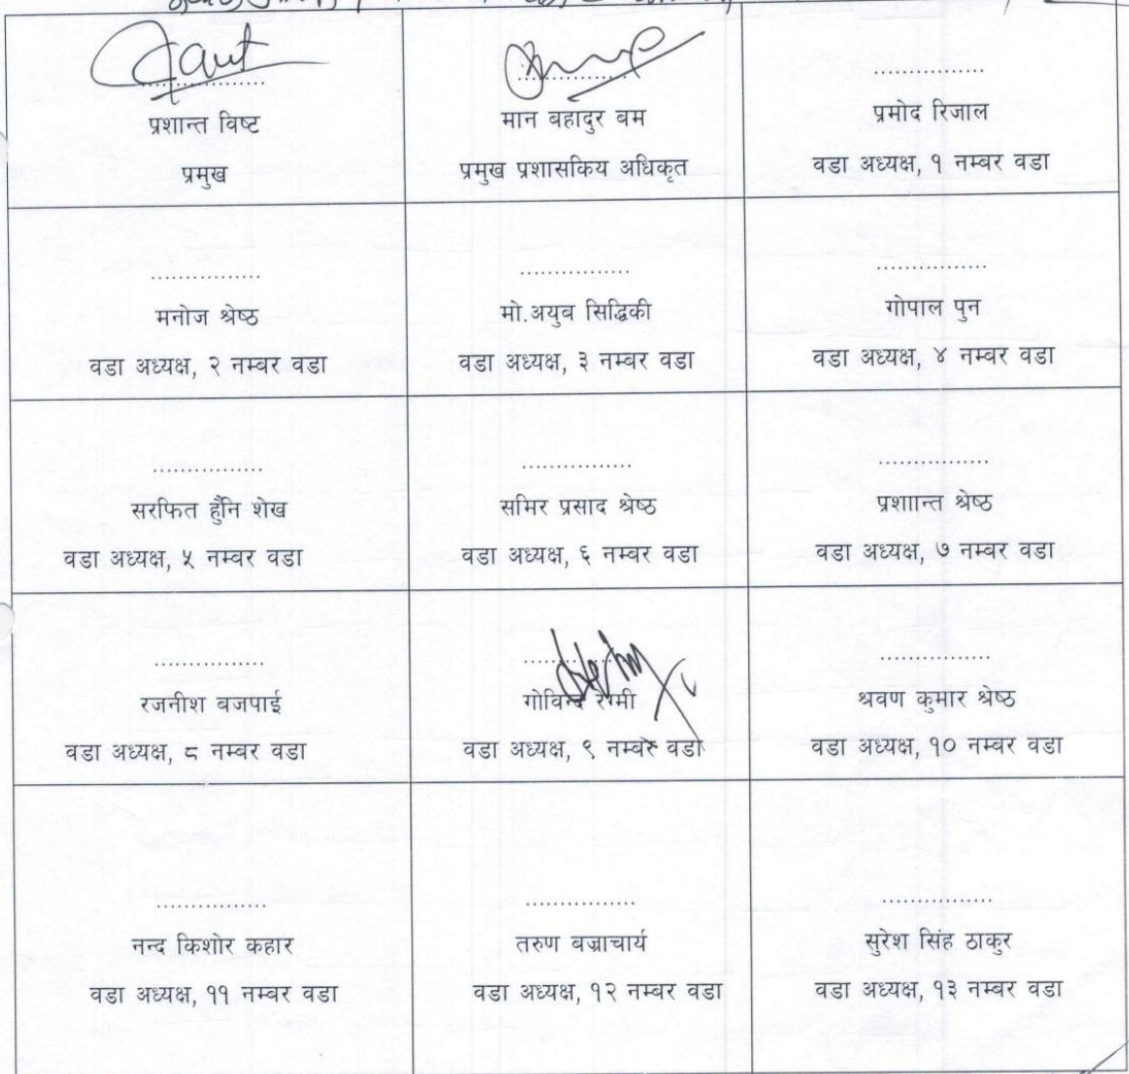 प्रशान्त विष्ट
प्रमुख
मान बहादुर बम
प्रमुख प्रशासकिय अधिकृत
................
प्रमोद रिजाल
वडा अध्यक्ष, १ नम्बर वडा
................
मनोज श्रेष्ठ
वडा अध्यक्ष, २ नम्बर वडा
................
मो.अयुब सिद्धिकी
वडा अध्यक्ष, ३ नम्बर वडा
................
गोपाल पुन
वडा अध्यक्ष, ४ नम्बर वडा
................
सरफित हुँनि शेख
वडा अध्यक्ष, ५ नम्बर वडा
................
समिर प्रसाद श्रेष्ठ
वडा अध्यक्ष, ६ नम्बर वडा
................
प्रशाान्त श्रेष्ठ
वडा अध्यक्ष, ७ नम्बर वडा
................
रजनीश बजपाई
वडा अध्यक्ष, ८ नम्बर वडा
गोविन्द रेग्मी
वडा अध्यक्ष, ९ नम्बर वडा
................
श्रवण कुमार श्रेष्ठ
वडा अध्यक्ष, १० नम्बर वडा
................
नन्द किशोर कहार
वडा अध्यक्ष, ११ नम्बर वडा
................
तरुण बज्राचार्य
वडा अध्यक्ष, १२ नम्बर वडा
................
सुरेश सिंह ठाकुर
वडा अध्यक्ष, १३ नम्बर वडा